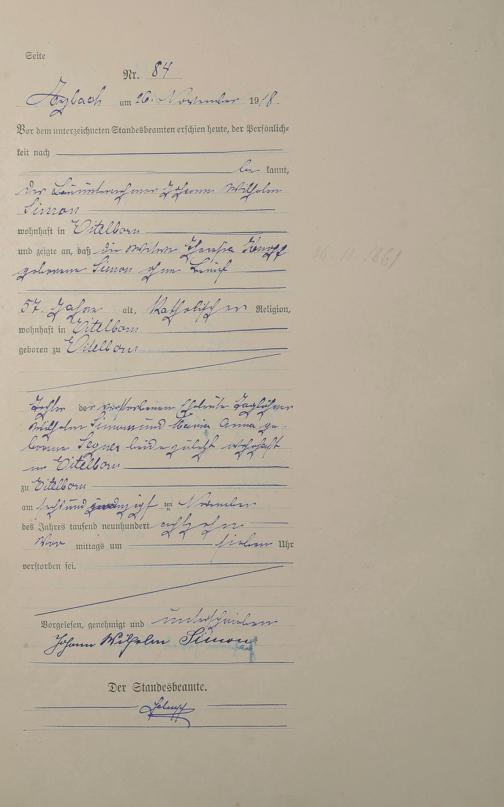 Seite
Nr. 84
Arzbach am 26. November 1918.
Vor dem unterzeichneten Standesbeamten erschien heute, der Persönlich-
keit nach
be kannt,
der Bauunternehmer Johann Wilhelm
Simon
wohnhaft in Eitelborn
und zeigte an, daß die Witwe Theresia Knopp
geborene Simon ohne Beruf
57 Jahre alt, katholischer Religion,
wohnhaft in Eitelborn
geboren zu Eitelborn
Tochter der verstorbenen Eheleute Taglöhner
Wilhelm Simon und Maria Anna ge-
borene Segner beide zuletzt wohnhaft
in Eitelborn
zu Eitelborn
am sechsundzwanzigsten November
des Jahres tausend neunhundert achtzehn
Vor mittags um sieben Uhr
verstorben sei.
Vorgelesen, genehmigt und unterschrieben
Johann Wilhelm Simon
Der Standesbeamte.